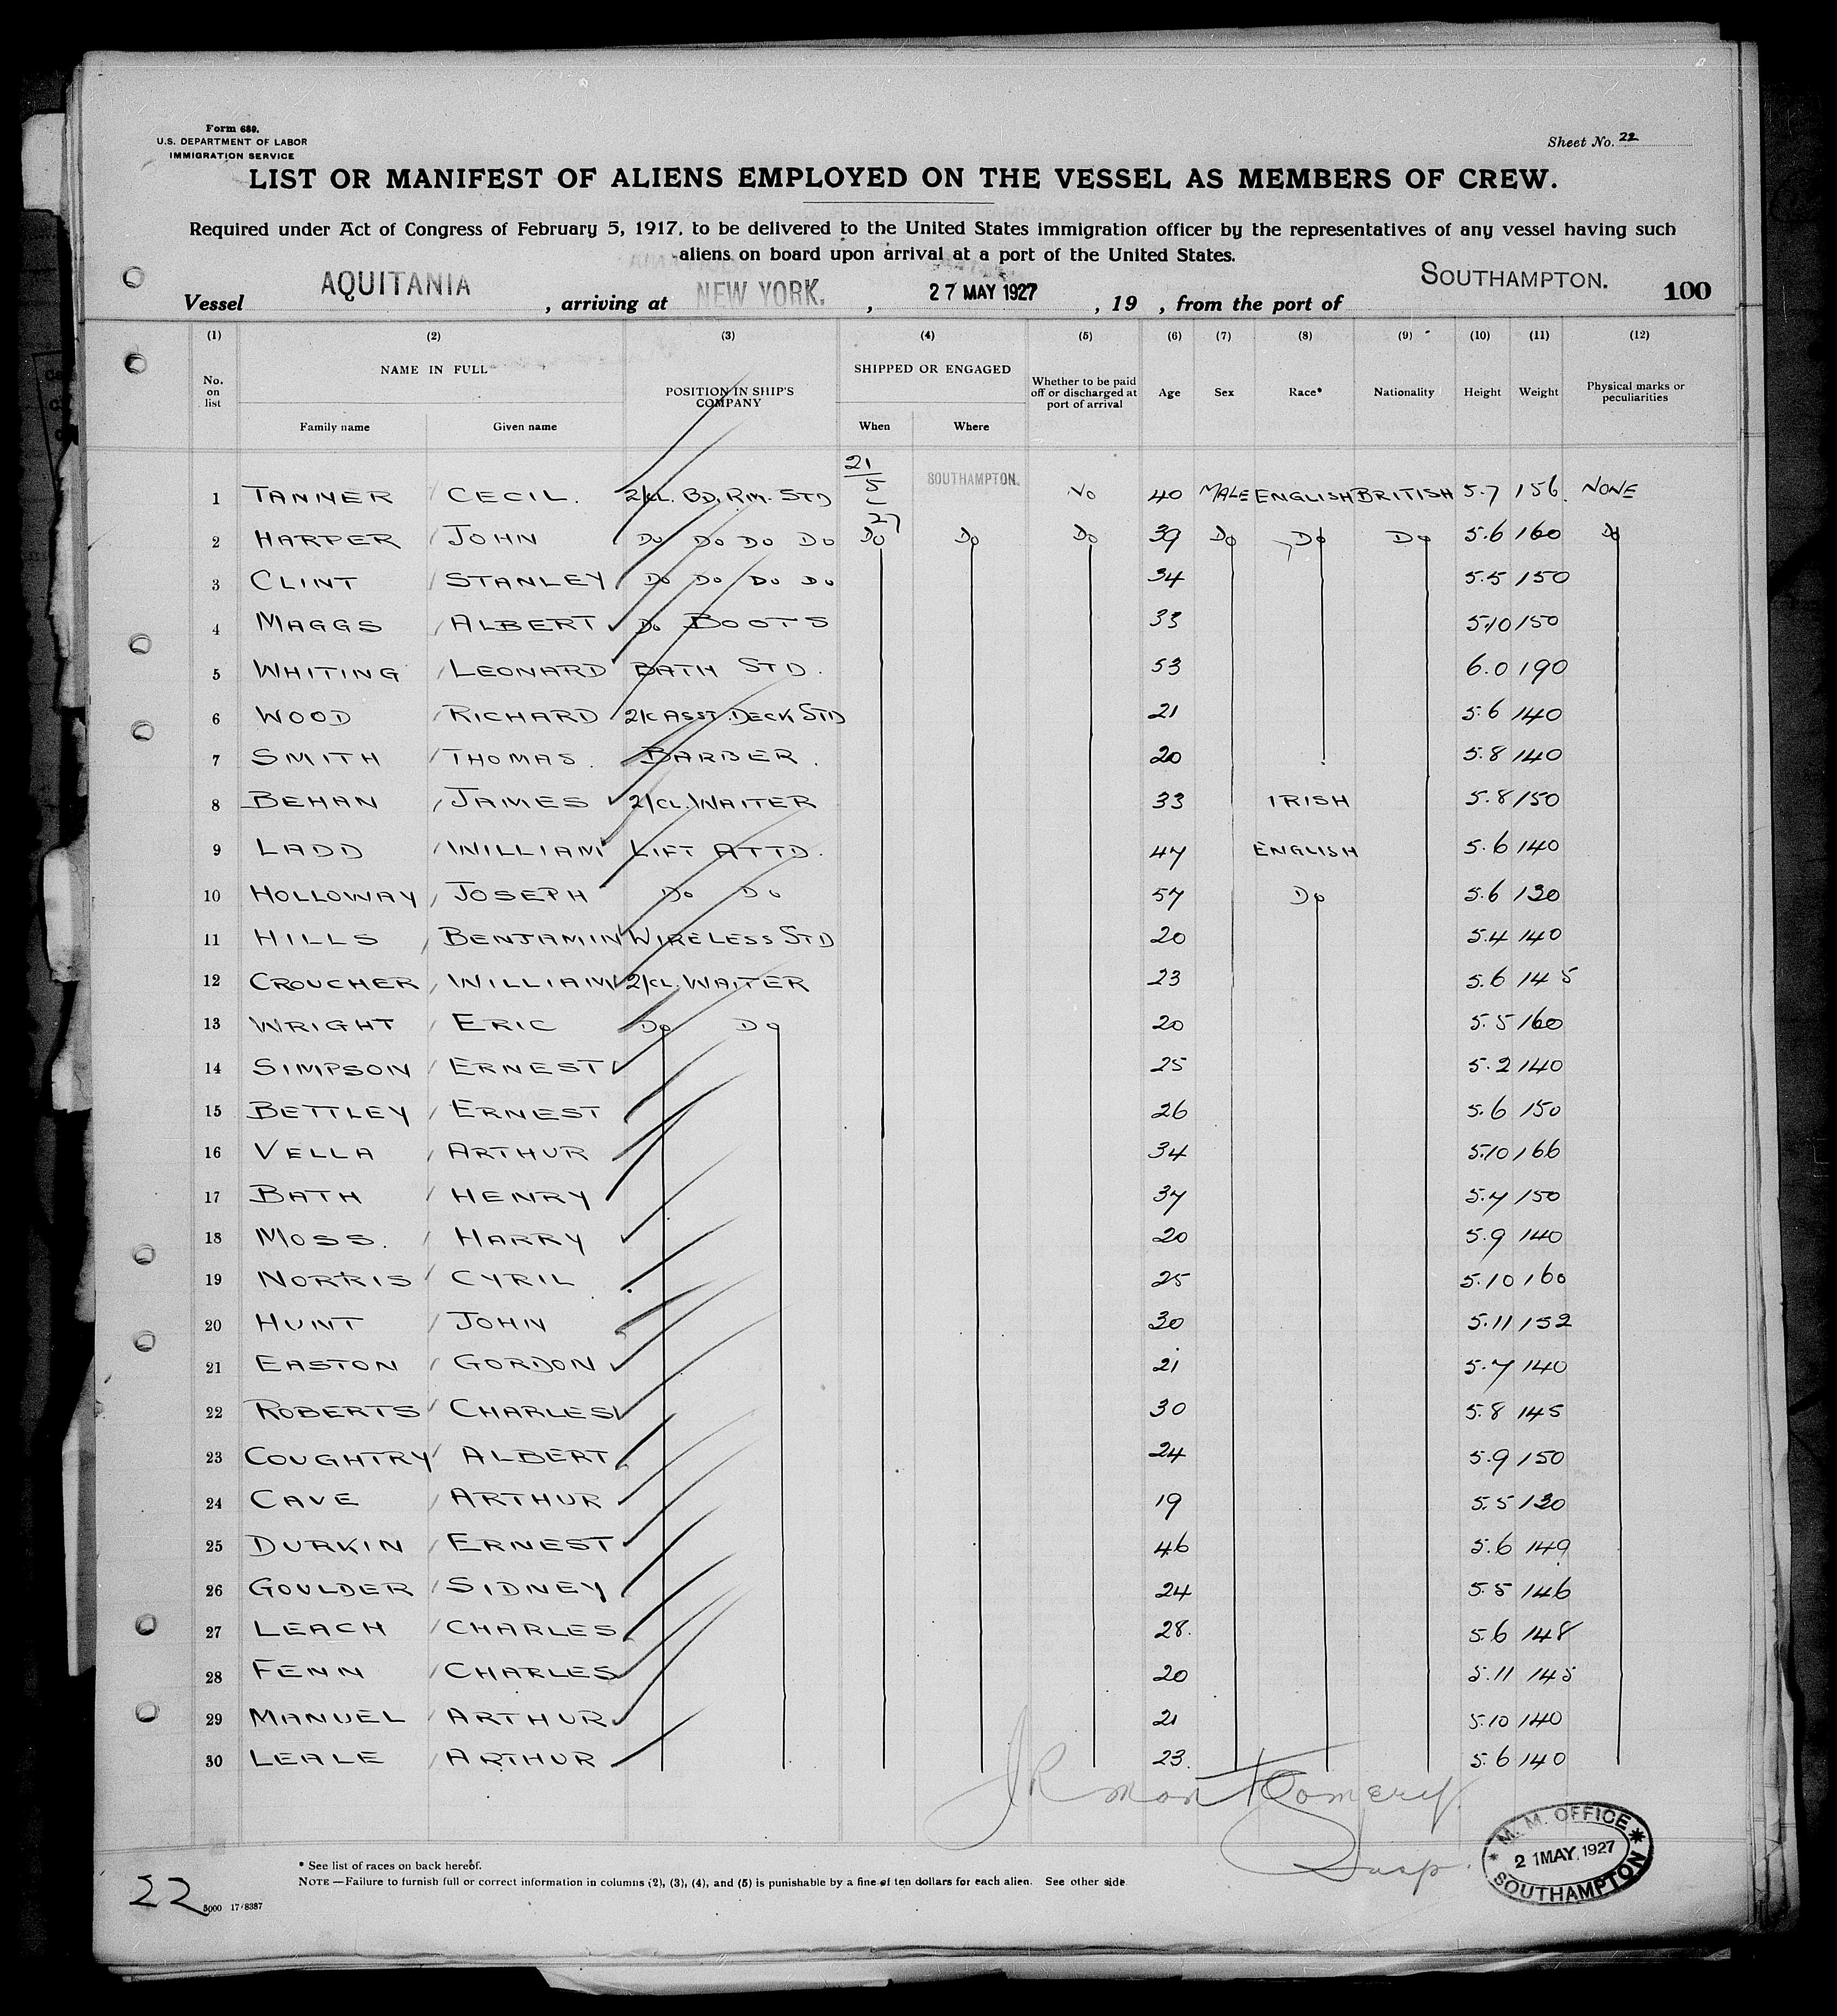 Form 689.
U.S. DEPARTMENT OF LABOR
IMMIGRATION SERVICE
Sheet No. 22
LIST OR MANIFEST OF ALIENS EMPLOYED ON THE VESSEL AS MEMBERS OF CREW.
Required under Act of Congress of February 5, 1917, to be delivered to the United States immigration officer by the representatives of any vessel having such
aliens on board upon arrival at a port of the United States.
Vessel AQUITANIA, arriving at NEW YORK., 27 MAY 1927, 19 , from the port of SOUTHAMPTON. 100
(1) (2) (3) (4) (5) (6) (7) (8) (9) (10) (11) (12)
No. on list NAME IN FULL POSITION IN SHIP'S COMPANY SHIPPED OR ENGAGED Whether to be paid off or discharged at port of arrival Age Sex Race* Nationality Height Weight Physical marks or peculiarities
Family name Given name When Where
1 TANNER CECIL. 2/CL. BD. RM. STD 21/5/27 SOUTHAMPTON. NO 40 MALE ENGLISH BRITISH 5.7 156 NONE
2 HARPER JOHN DO DO DO DO DO DO DO 39 DO DO DO 5.6 160 DO
3 CLINT STANLEY DO DO DO DO 34 5.5 150
4 MAGGS ALBERT DO BOOTS 33 5.10 150
5 WHITING LEONARD BATH STD. 53 6.0 190
6 WOOD RICHARD 2/C ASST. DECK STD 21 5.6 140
7 SMITH THOMAS. BARBER. 20 5.8 140
8 BEHAN JAMES 2/CL. WAITER 33 IRISH 5.8 150
9 LADD WILLIAM LIFT ATTD. 47 ENGLISH 5.6 140
10 HOLLOWAY JOSEPH DO DO 57 DO 5.6 130
11 HILLS BENJAMIN WIRELESS STD 20 5.4 140
12 CROUCHER WILLIAM 2/CL. WAITER 23 5.6 145
13 WRIGHT ERIC DO DO 20 5.5 160
14 SIMPSON ERNEST 25 5.2 140
15 BETTLEY ERNEST 26 5.6 150
16 VELLA ARTHUR 34 5.10 166
17 BATH HENRY 37 5.7 150
18 MOSS. HARRY 20 5.9 140
19 NORRIS CYRIL 25 5.10 160
20 HUNT JOHN 30 5.11 152
21 EASTON GORDON 21 5.7 140
22 ROBERTS CHARLES 30 5.8 145
23 COUGHTRY ALBERT 24 5.9 150
24 CAVE ARTHUR 19 5.5 130
25 DURKIN ERNEST 46 5.6 149
26 GOULDER SIDNEY 24 5.5 146
27 LEACH CHARLES 28. 5.6 148
28 FENN CHARLES 20 5.11 145
29 MANUEL ARTHUR 21 5.10 140
30 LEALE ARTHUR 23. 5.6 140
JR Montgomery
* See list of races on back hereof.
NOTE—Failure to furnish full or correct information in columns (2), (3), (4), and (5) is punishable by a fine of ten dollars for each alien. See other side
22 5000 17/8387
M. M. OFFICE
21 MAY. 1927
SOUTHAMPTON